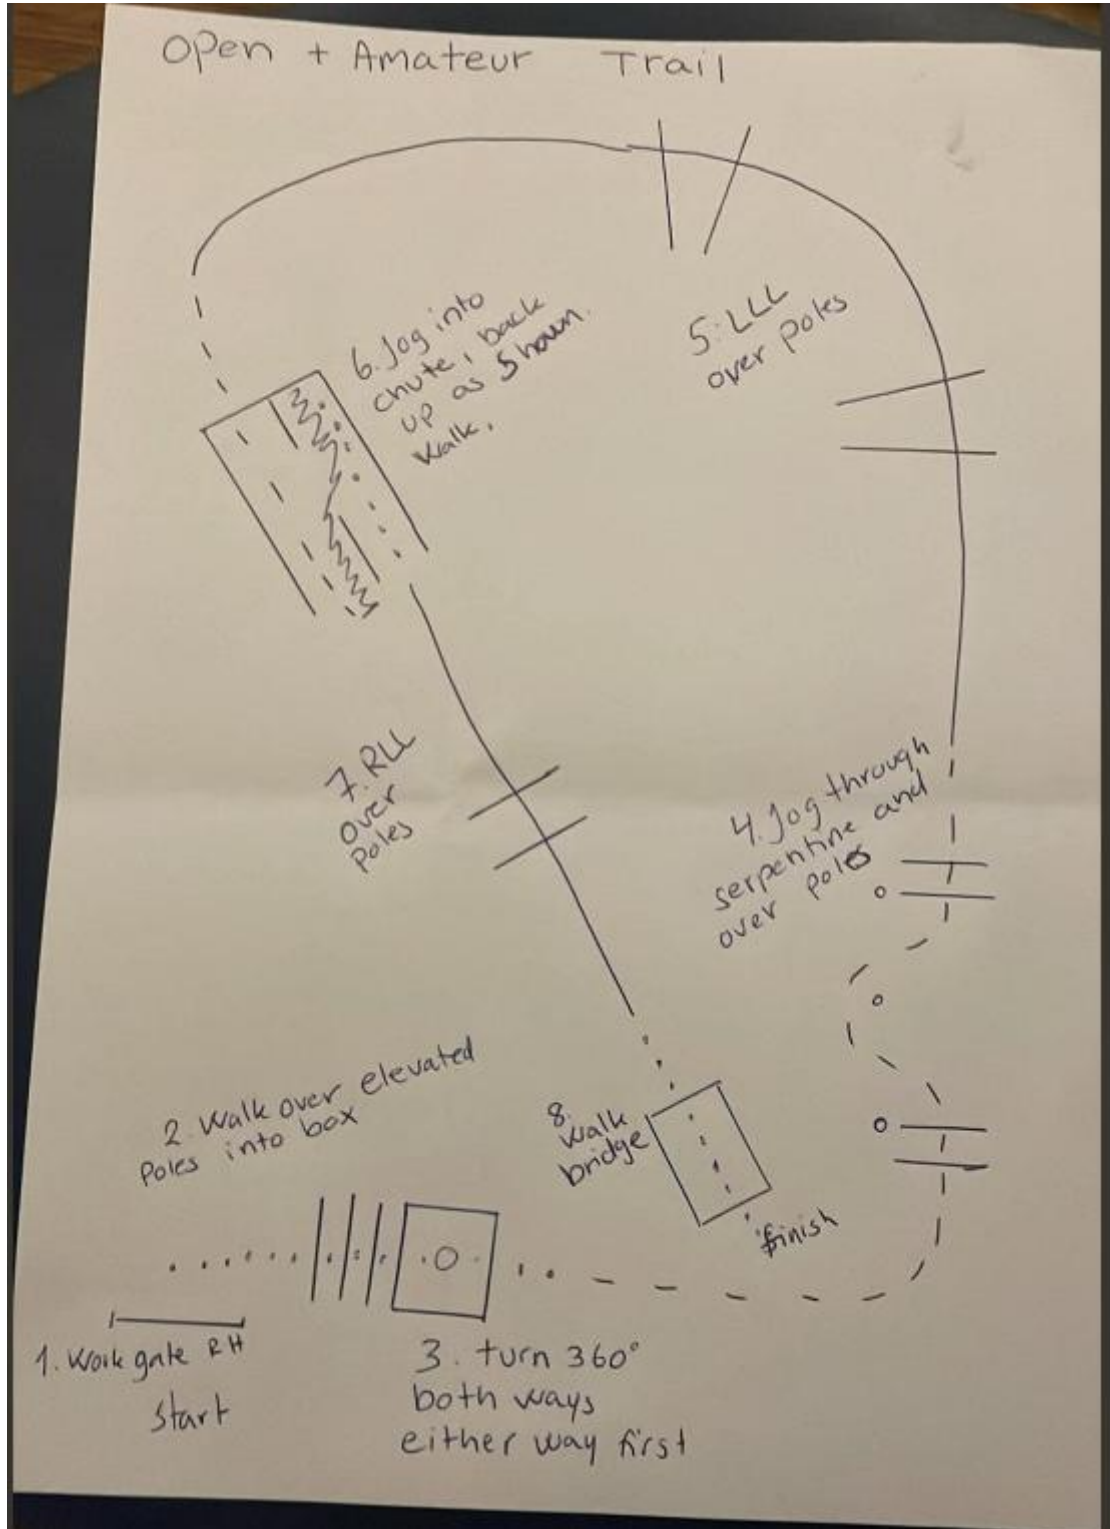 Open + Amateur Trail
5. LLL
over poles
6. Jog into
chute, back
up as shown.
Walk.
7. RLL
over
poles
4. Jog through
serpentine and
over poles
2. Walk over elevated
poles into box
8.
walk
bridge
finish
1. Work gate RH
Start
3. turn 360°
both ways
either way first